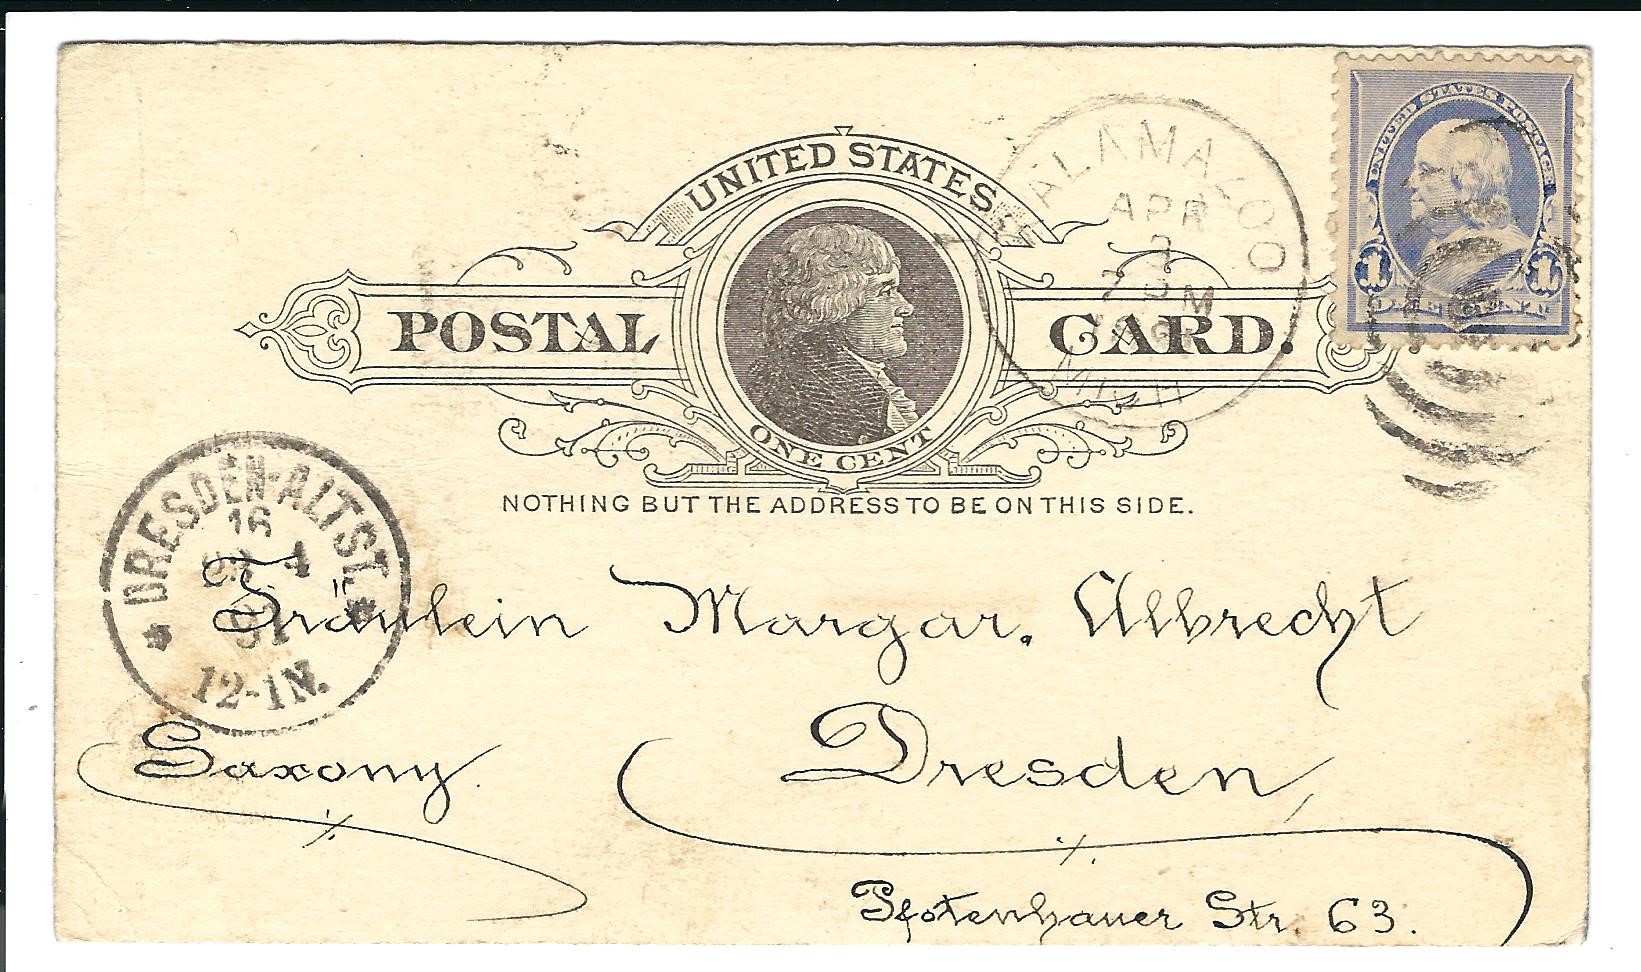 UNITED STATES
POSTAL CARD.
ONE CENT
NOTHING BUT THE ADDRESS TO BE ON THIS SIDE.
UNITED STATES POSTAGE
1 1
ONE CENT
KALAMAZOO
APR
M
MICH
DRESDEN-ALTST.
16
4
91
12-1N.
Fräulein Margar. Albrecht
Dresden,
Saxony.
Pfotenhauer Str. 63.